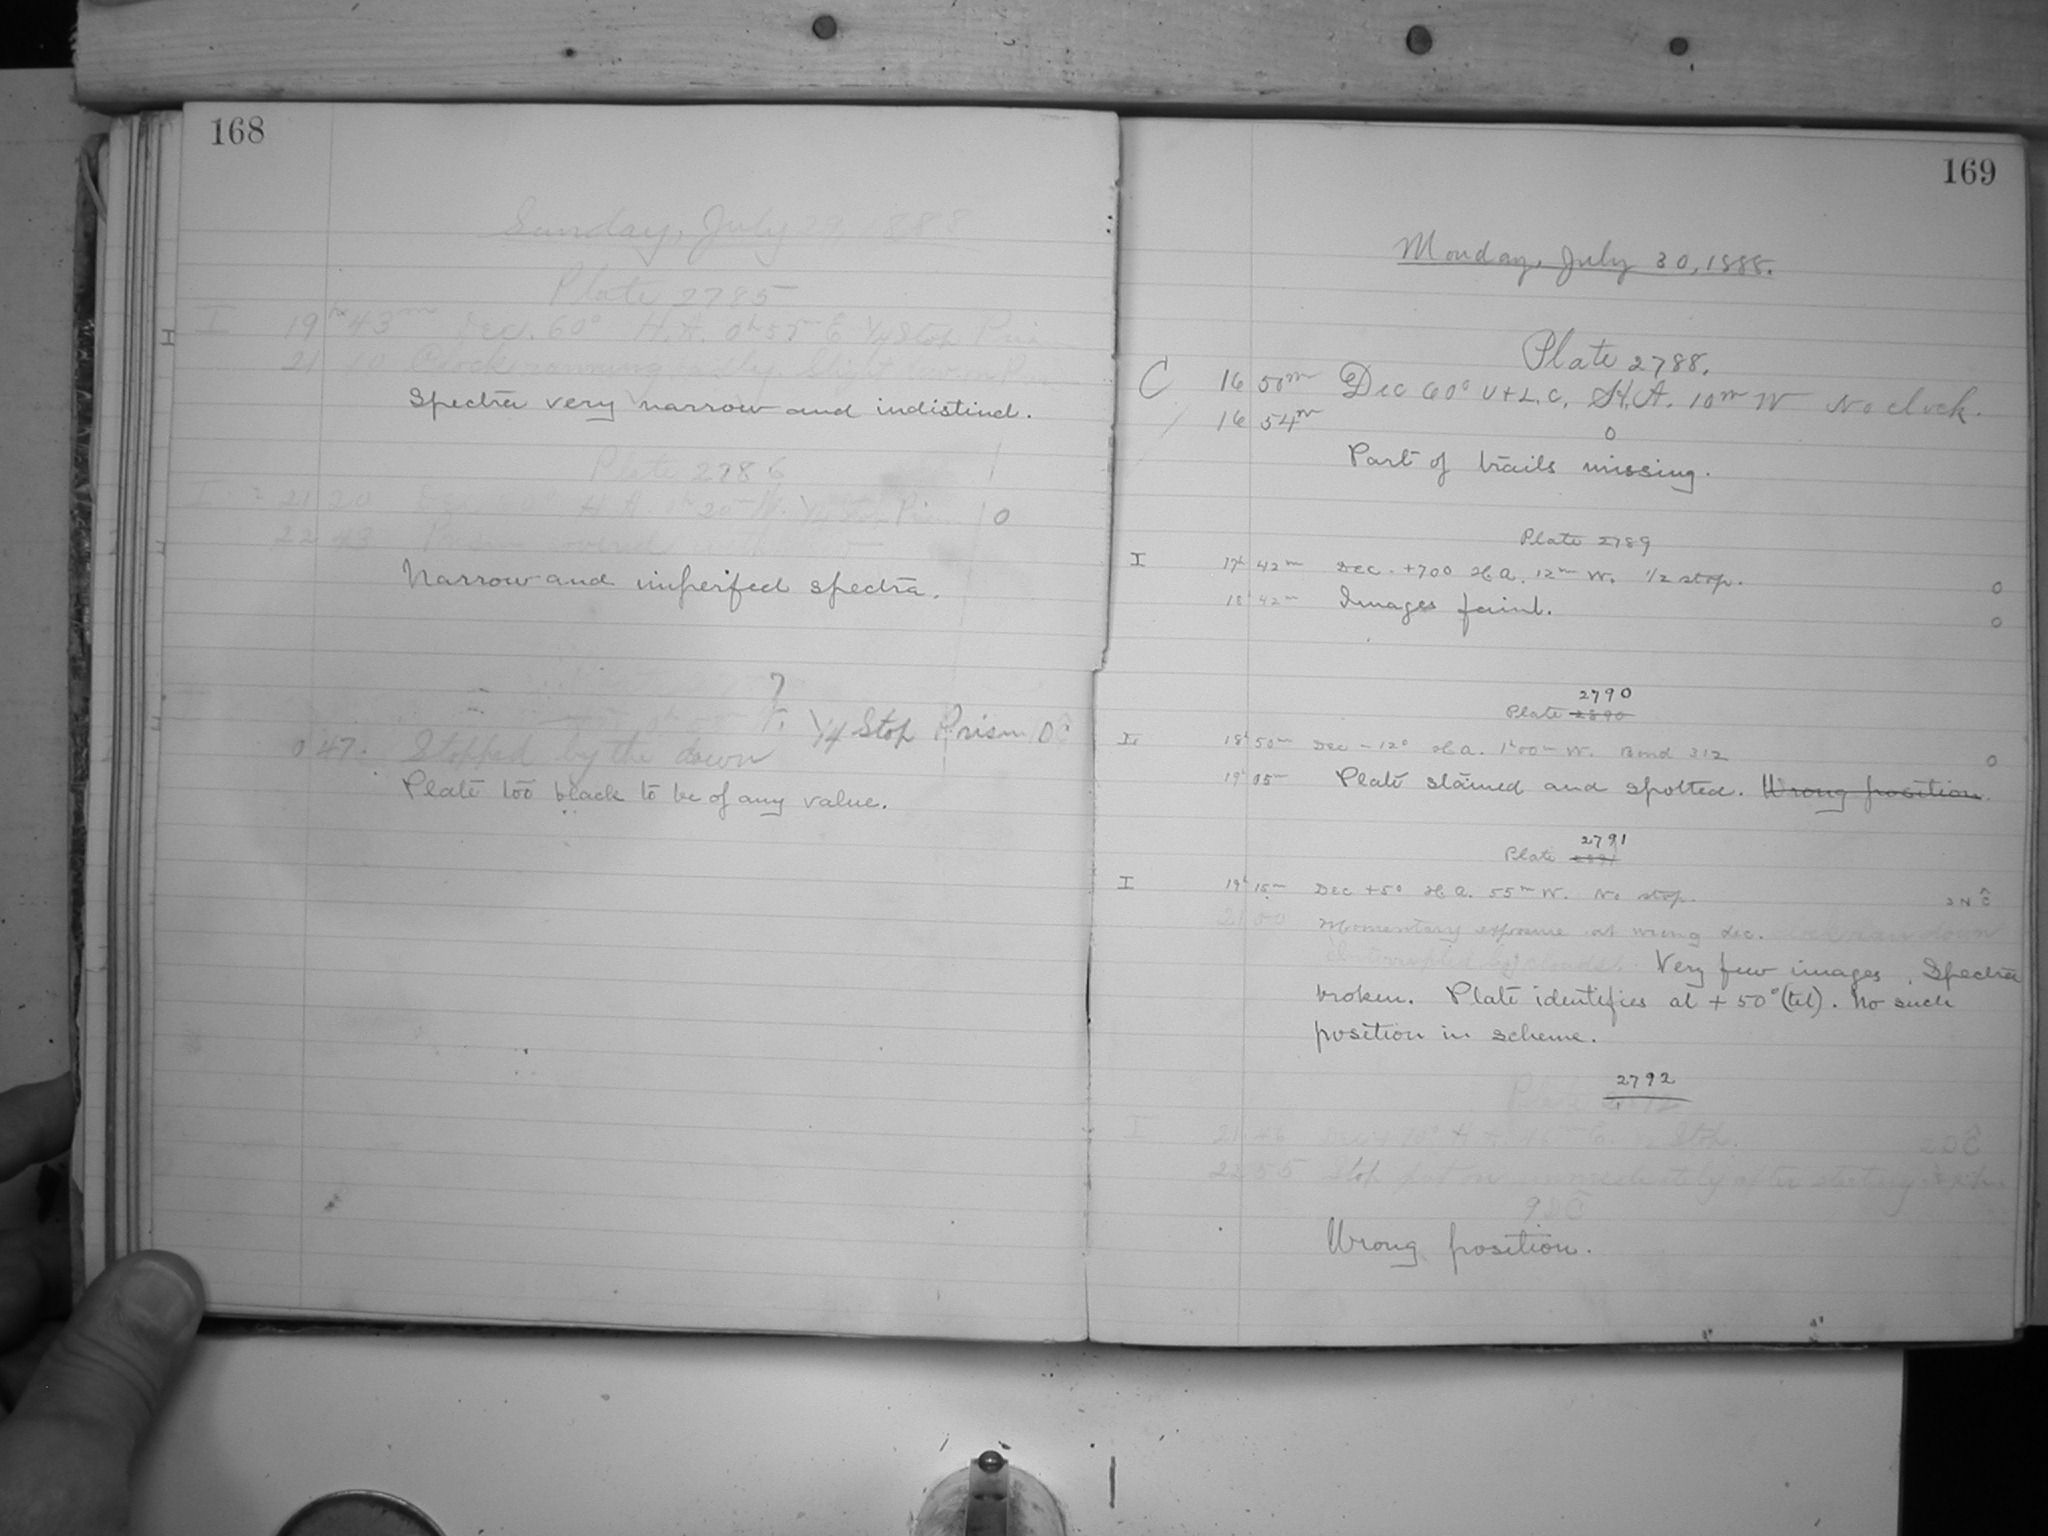 168
Sunday, July 29, 1888
Plate 2785
I 19h 43m Dec. 60° H.A. 0h 55m E 1/4 Stop
21 10 Clock running
Spectra very narrow and indistinct.
Plate 2786
I 21 20 H.A. 0h 20m W. 1/4 Stop Prism 0
22 43
Narrow and imperfect spectra.
7
1/4 Stop Prism
0 47. Stopped by the dawn
Plate too black to be of any value.
169
Monday, July 30, 1888.
Plate 2788.
C 16 50m Dec 60° U+L.C. H.A. 10m W No clock.
16 54m
0
Part of trails missing.
Plate 2789
I 17h 42m Dec. +70° H.A. 12m W. 1/2 stop. 0
18h 42m Images faint. 0
2790
Plate 2890
I. 18h 50m Dec -12° H.A. 1h 00m W. Bond 312 0
19h 05m Plate stained and spotted. Wrong position.
2791
Plate 2891
I 19h 15m Dec +5° H.A. 55m W. No stop.
21 00 Momentary exposure at wrong dec. clock ran down
Interrupted by clouds. Very few images. Spectra
broken. Plate identifies at +50° (tel). No such
position in scheme.
2792
I 21 46 Dec + 70° H.A. 46m E. Stop.
22 55 Stop put on immediately after starting
Wrong position.